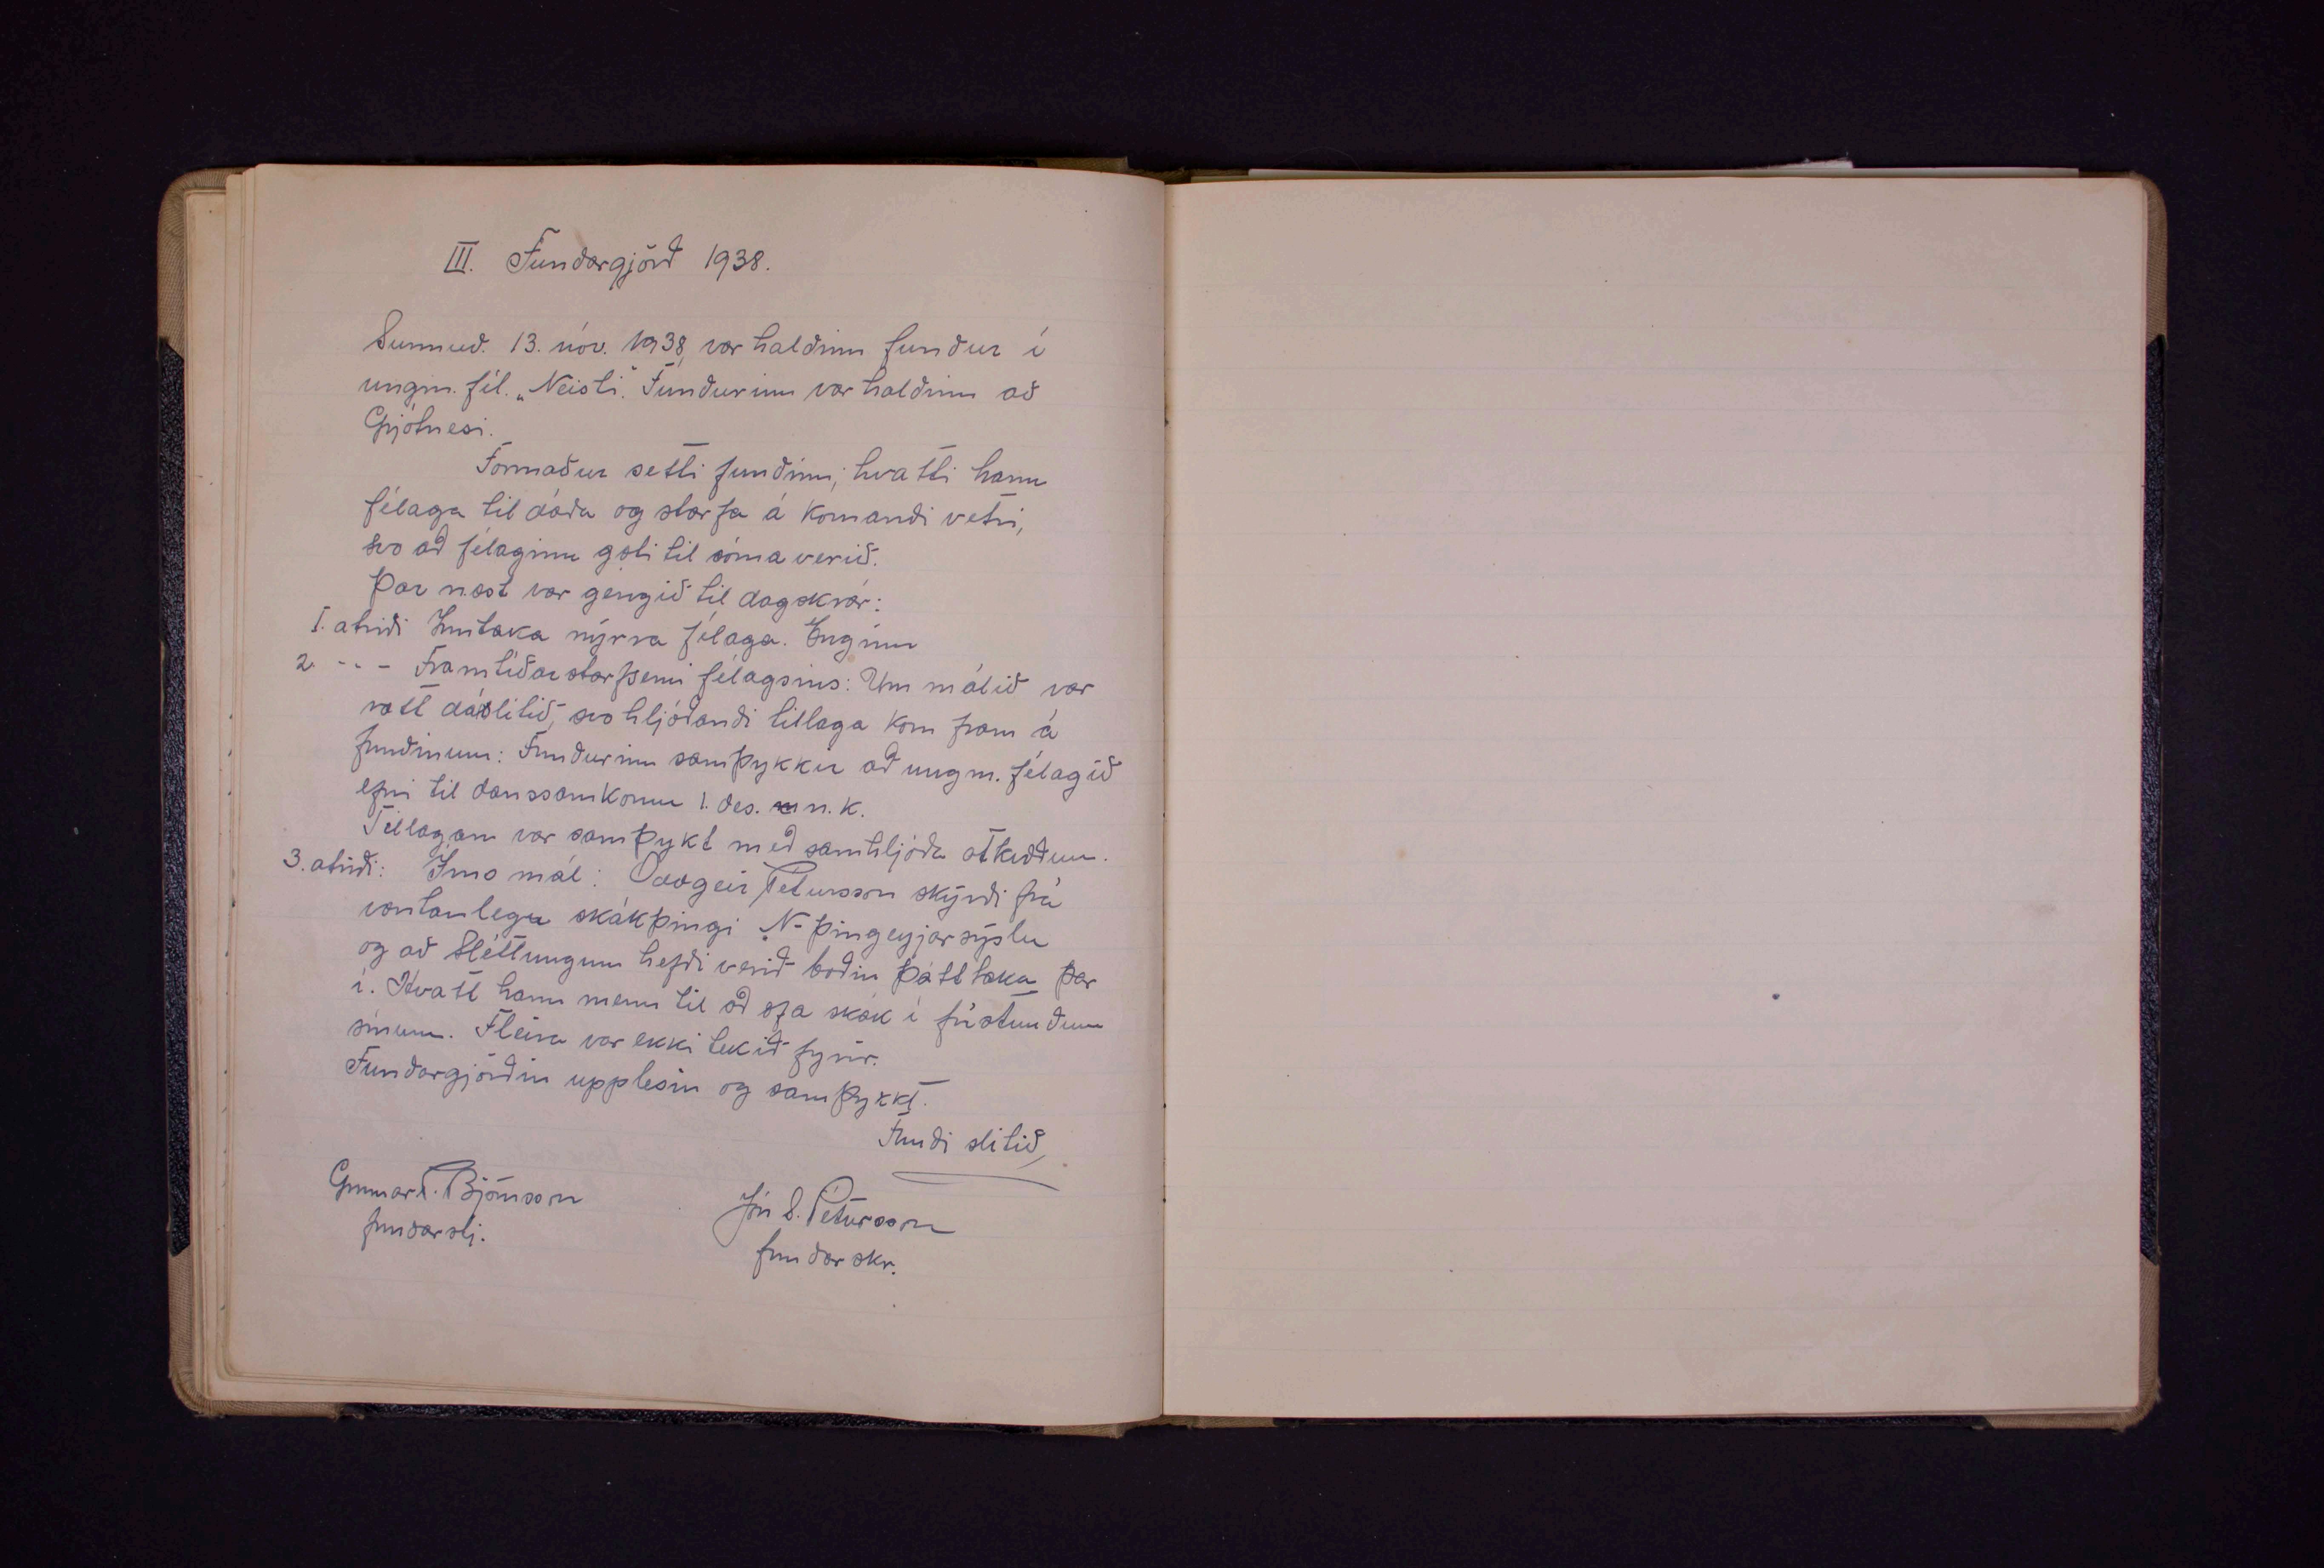 III. Fundargjörð 1938.
Sunnud. 13. nóv. 1938, var haldinn fundur í
ungm. fél. „Neisti“. Fundurinn var haldinn að
Grjótnesi.
Formaður setti fundinn; hvatti hann
félaga til dáða og starfa á komandi vetri,
svo að félaginu gæti til sóma verið.
Þar næst var gengið til dagskrár:
1. atriði Inntaka nýrra félaga. Enginn
2. -"- Framtíðar starfsemi félagsins: Um málið var
rætt dálítið, svo hljóðandi tillaga kom fram á
fundinum: Fundurinn samþykkir að ungm. félagið
efni til danssamkomu 1. des. n.k.
Tillagan var samþykt með samhljóða atkvæðum.
3. atriði: Ýms mál: Oddgeir Pétursson skýrði frá
væntanlegu skákþingi N-þingeyjarsýslu
og að Sléttungum hefði verið boðin þátttaka þar
í. Hvatt hann menn til að æfa skák í frístundum
sínum. Fleira var ekki tekið fyrir.
Fundargjörðin upplesin og samþykkt.
Fundi slitið,
Gunnar Þ. Björnsson
fundarstj.
Jón S. Pétursson
fundarskr.